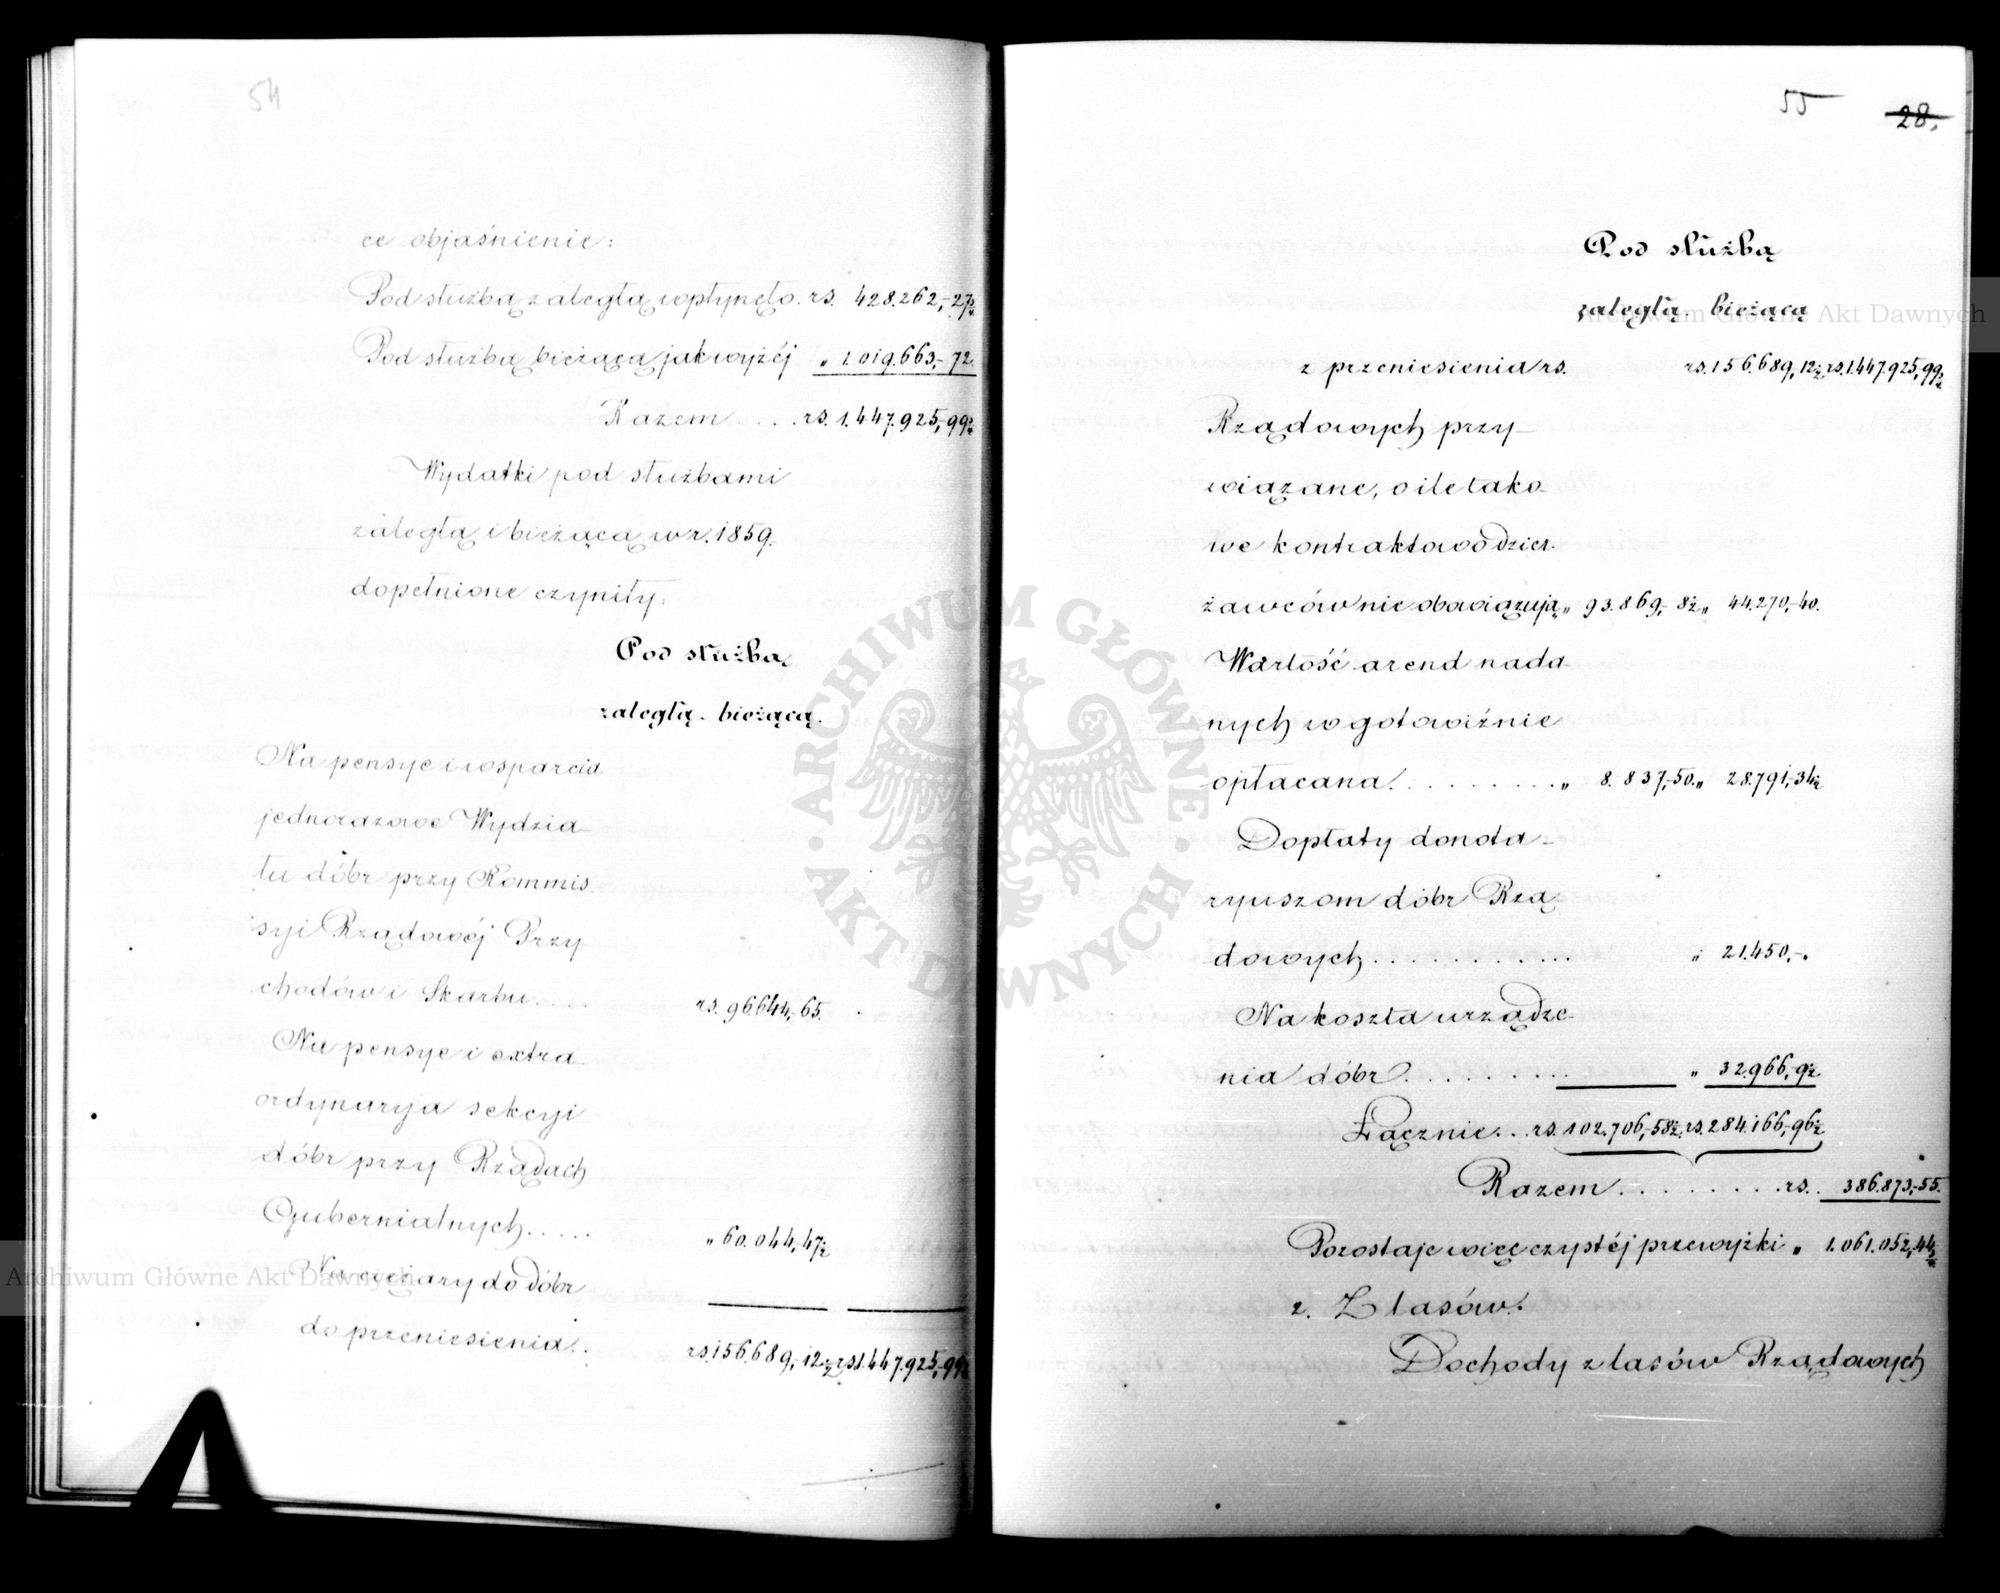 54
ce objaśnienie:
Pod służbą zaległą wpłynęło. rs. 428.262,-27½
Pod służbą bieżącą jak wyżéj „ 1.019.663,-72.
Razem .... rs. 1.447.925,-99½
Wydatki pod służbami
zaległą i bieżącą w r. 1859.
dopełnione czyniły:
Pod służbą
zaległą. bieżącą.
Na pensye i wsparcia
jednorazowe Wydzia-
łu dóbr przy Kommis
syi Rządowéj Przy
chodów i Skarbu.... rs. 96.644,-65.
Na pensye i extra
ordynarya sekcyi
dóbr przy Rządach
Gubernialnych..... „ 60.044,-47½
Na ciężary do dóbr
do przeniesienia.. rs. 156.689,-12½ rs. 1.447.925,-99½
55 28.
Pod służbą
zaległą. bieżącą
z przeniesienia rs. rs. 156.689,12½ rs. 1.447.925,99½
Rządowych przy-
wiązane, o ile tako-
we kontraktowo dzier.
żawców nie obowiązują „ 93.869,- 8½ „ 44.270,-40.
Wartość arend nada-
nych w gotowiźnie
opłacana.......... „ 8.837,-50. „ 28.791,-34½
Dopłaty donota-
ryuszom dóbr Rzą-
dowych........... „ 21.450,-.
Na koszta urządze-
nia dóbr......... „ 32.966,-9½
Łącznie... rs. 102.706,-58½ rs. 284.166,-96½
Razem......... rs. 386.873,-55.
Pozostaje więc czystéj przewyżki „ 1.061.052,44½
2. Z lasów.
Dochody z lasów Rządowych
ARCHIWUM GŁÓWNE · AKT DAWNYCH ·
Archiwum Główne Akt Dawnych
Archiwum Główne Akt Dawnych